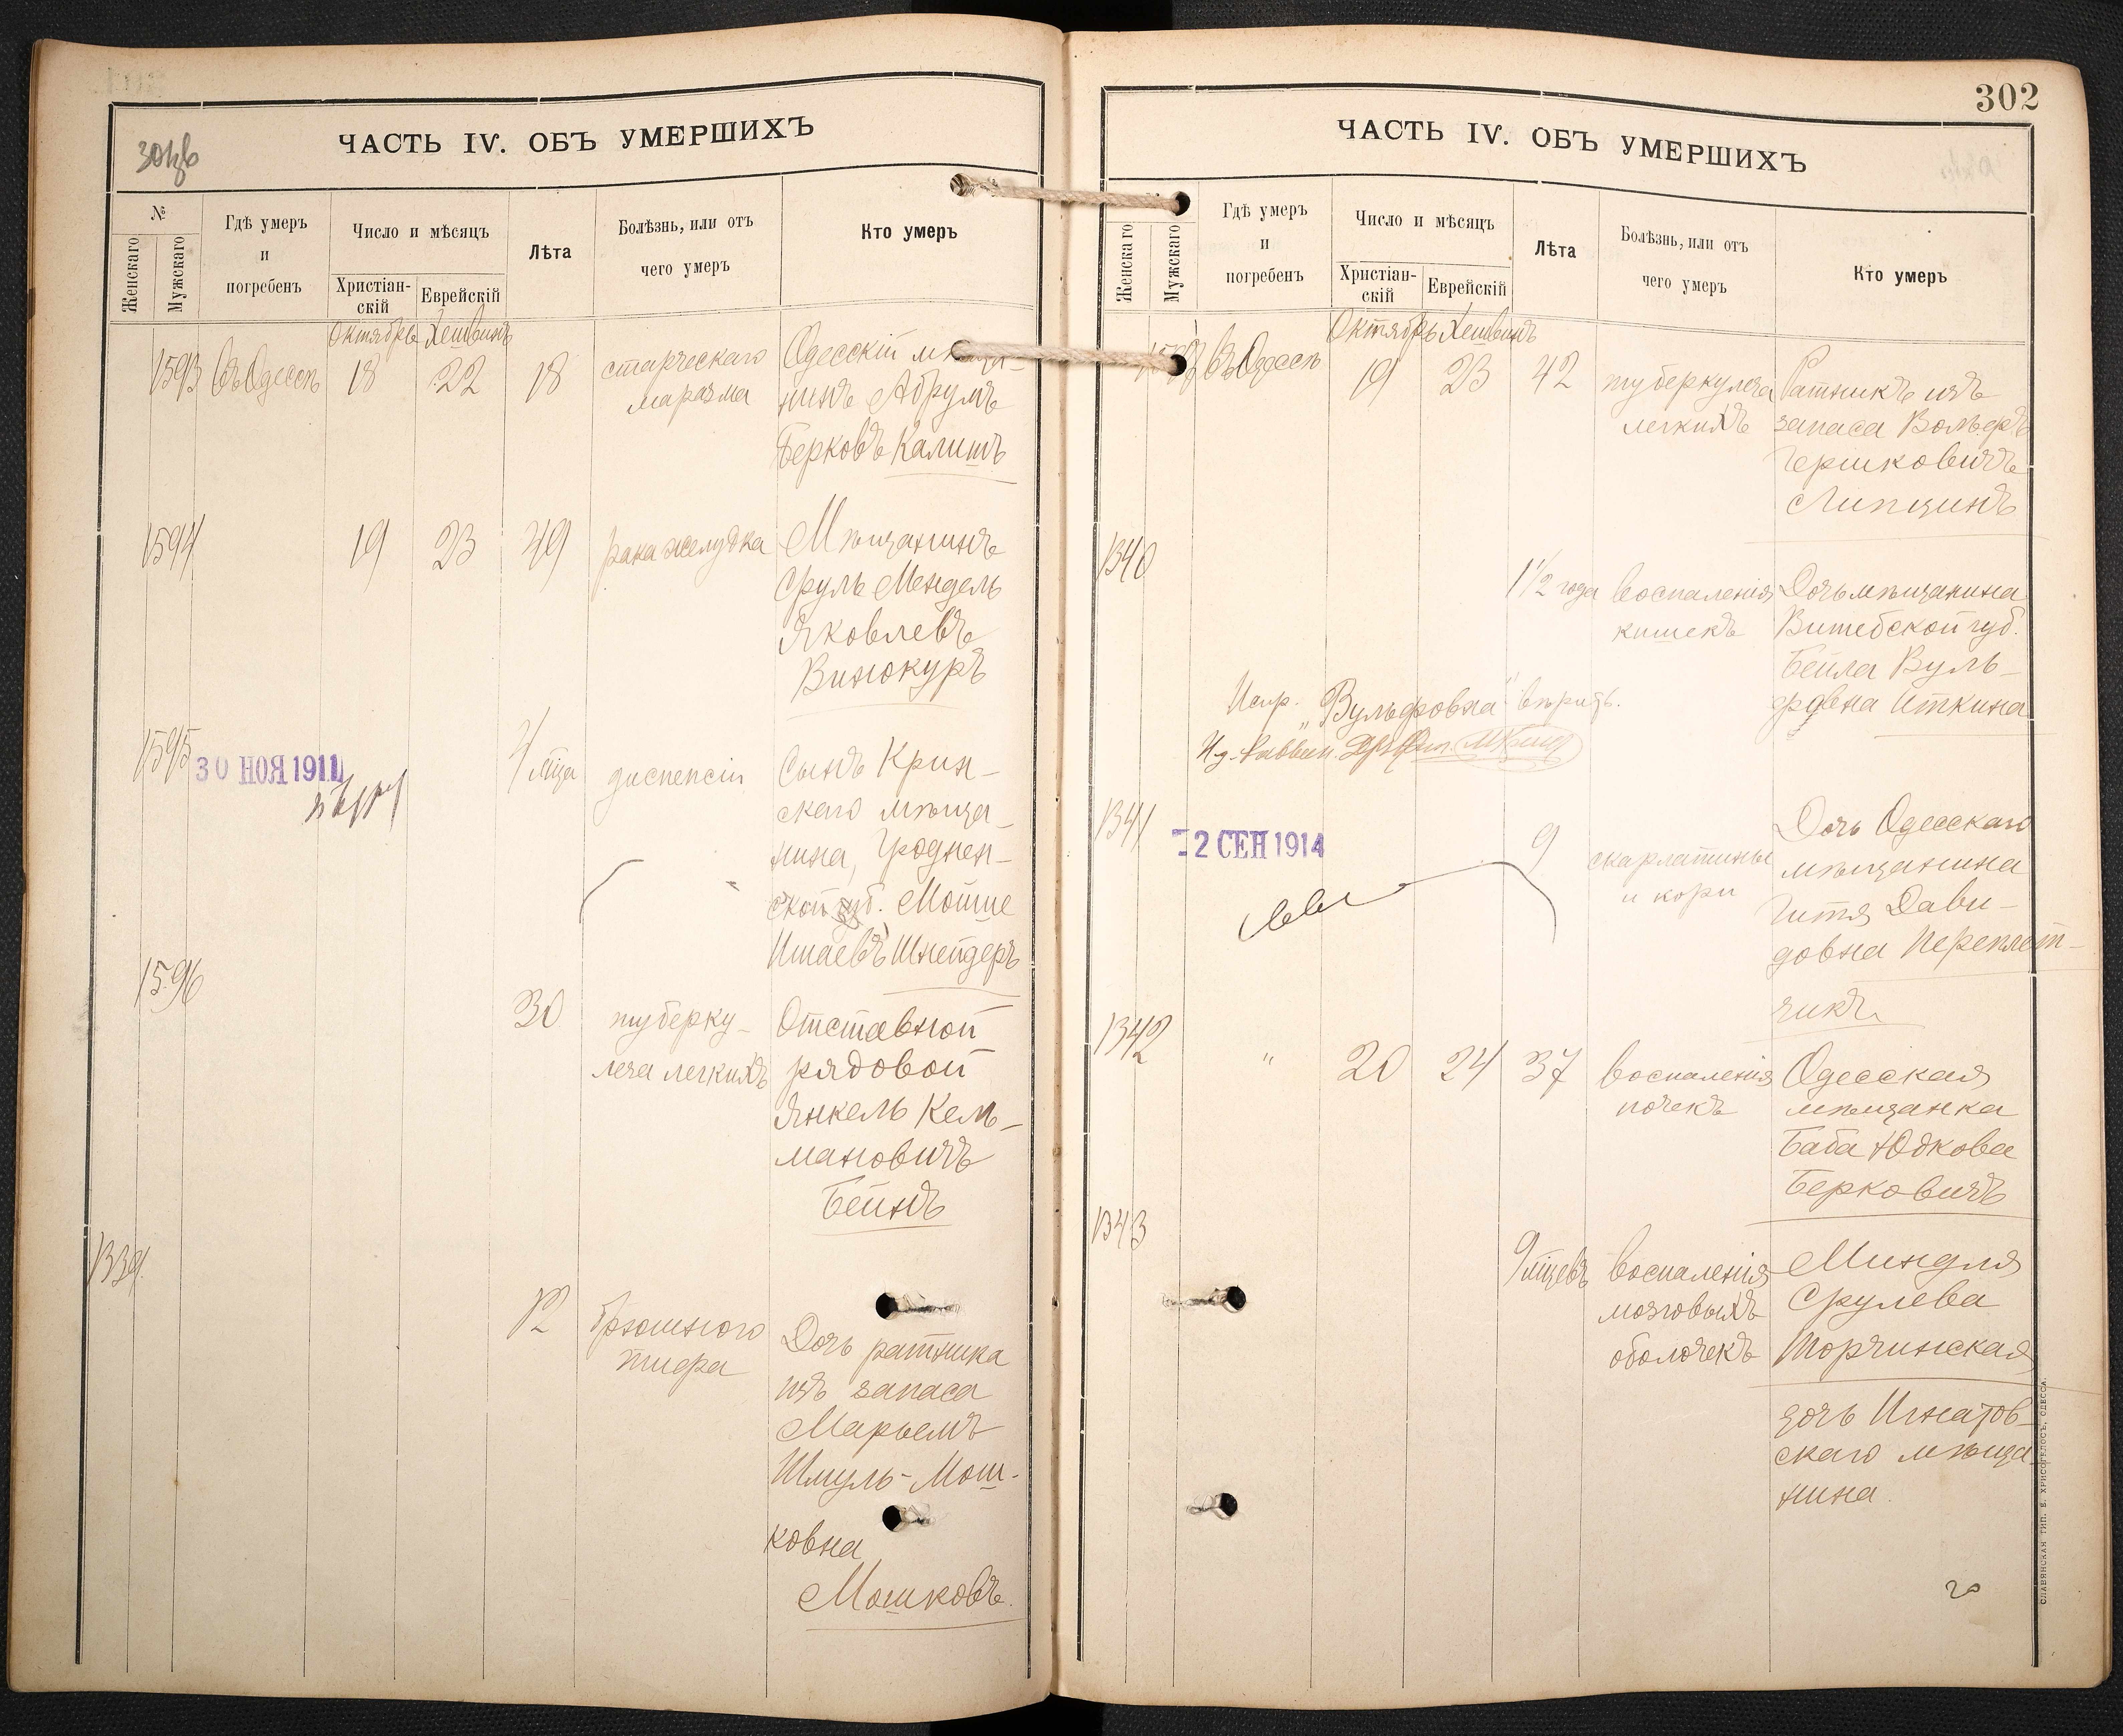 ЧАСТЬ IV. ОБЪ УМЕРШИХЪ
№
Женскаго
Мужскаго
Гдѣ умеръ
и
погребенъ
Число и мѣсяцъ
Христіан-
скій
Еврейскій
Лѣта
Болѣзнь, или отъ
чего умеръ
Кто умеръ
Октябрь Хешвинъ
1593 Въ Одессѣ 18 22 18
старческаго
маразма
Одесскій мѣща-
нинъ Абрумъ
Берковъ Калишъ
1594 19 23 49 рака желудка
Мѣщанинъ
Сруль Мендель
Яковлевъ
Винокуръ
1595
30 НОЯ 1911
4 мца диспепсіи
Сынъ Крин-
скаго мѣща-
нина, Гроднен-
ской губ. Мойше
Ишаевъ Шнейдеръ
1596
30 туберку-
леза легкихъ
Отставной
рядовой
Янкель Кель-
мановичъ
Бейнъ
1339
12 брюшного
тифа
Дочь ратника
изъ запаса
Марьемъ
Шмуль-Мош-
ковна
Мошковъ.
302
ЧАСТЬ IV. ОБЪ УМЕРШИХЪ
Женскаго
Мужскаго
Гдѣ умеръ
и
погребенъ
Число и мѣсяцъ
Христіан-
скій
Еврейскій
Лѣта
Болѣзнь, или отъ
чего умеръ
Кто умеръ
Октябрь Хешвинъ
Въ Одессѣ 19 23 42
туберкулеза
легкихъ
Ратникъ изъ
запаса Вольфъ
Гершковичъ
Липцинъ
1340
1 1/2 года воспаленія
кишекъ
Дочь мѣщанина
Витебской губ.
Бейла Вуль-
фовна Иткина
Испр. „Вульфовна" вѣрить.
И.д. Раввин.
1341
2 СЕН 1914
9 скарлатины
и кори
Дочь Одесскаго
мѣщанина
Гитя Дави-
довна Переплет-
чикъ
1342 " 20 24 37 воспаленія
почекъ
Одесская
мѣщанка
Баба Юдкова
Берковичъ
1343
9 мцевъ воспаленія
мозговыхъ
оболочекъ
Миндля
Срулева
Торчинская
дочь Игнатов-
скаго мѣща
нина.
СЛАВЯНСКАЯ ТИП. Е. ХРИСОГЕЛОСЪ, ОДЕССА.